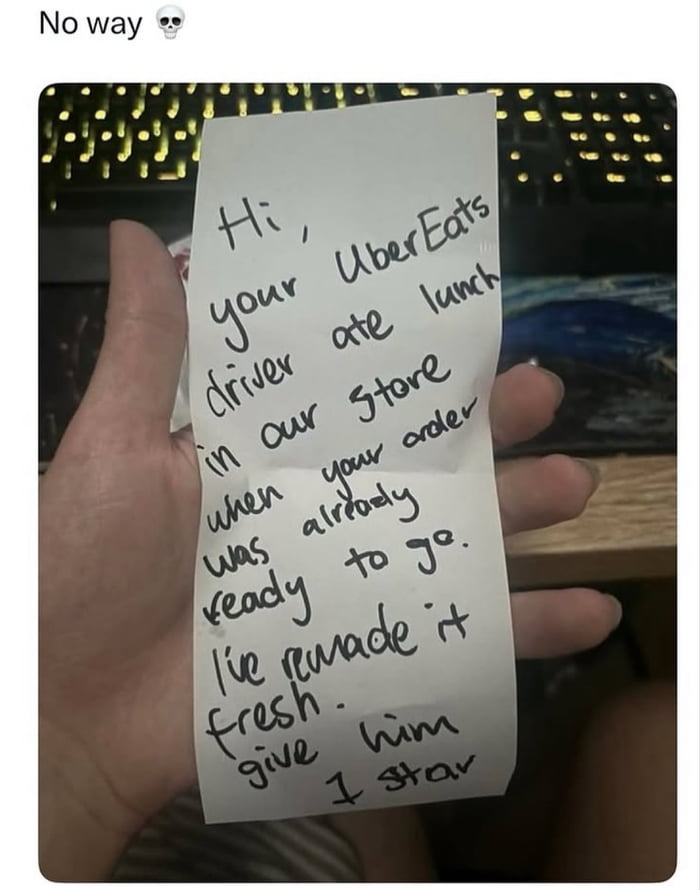 No way 💀
Hi,
your UberEats
driver ate lunch
in our store
when your order
was already
ready to go.
I've remade it
fresh.
give him
1 star